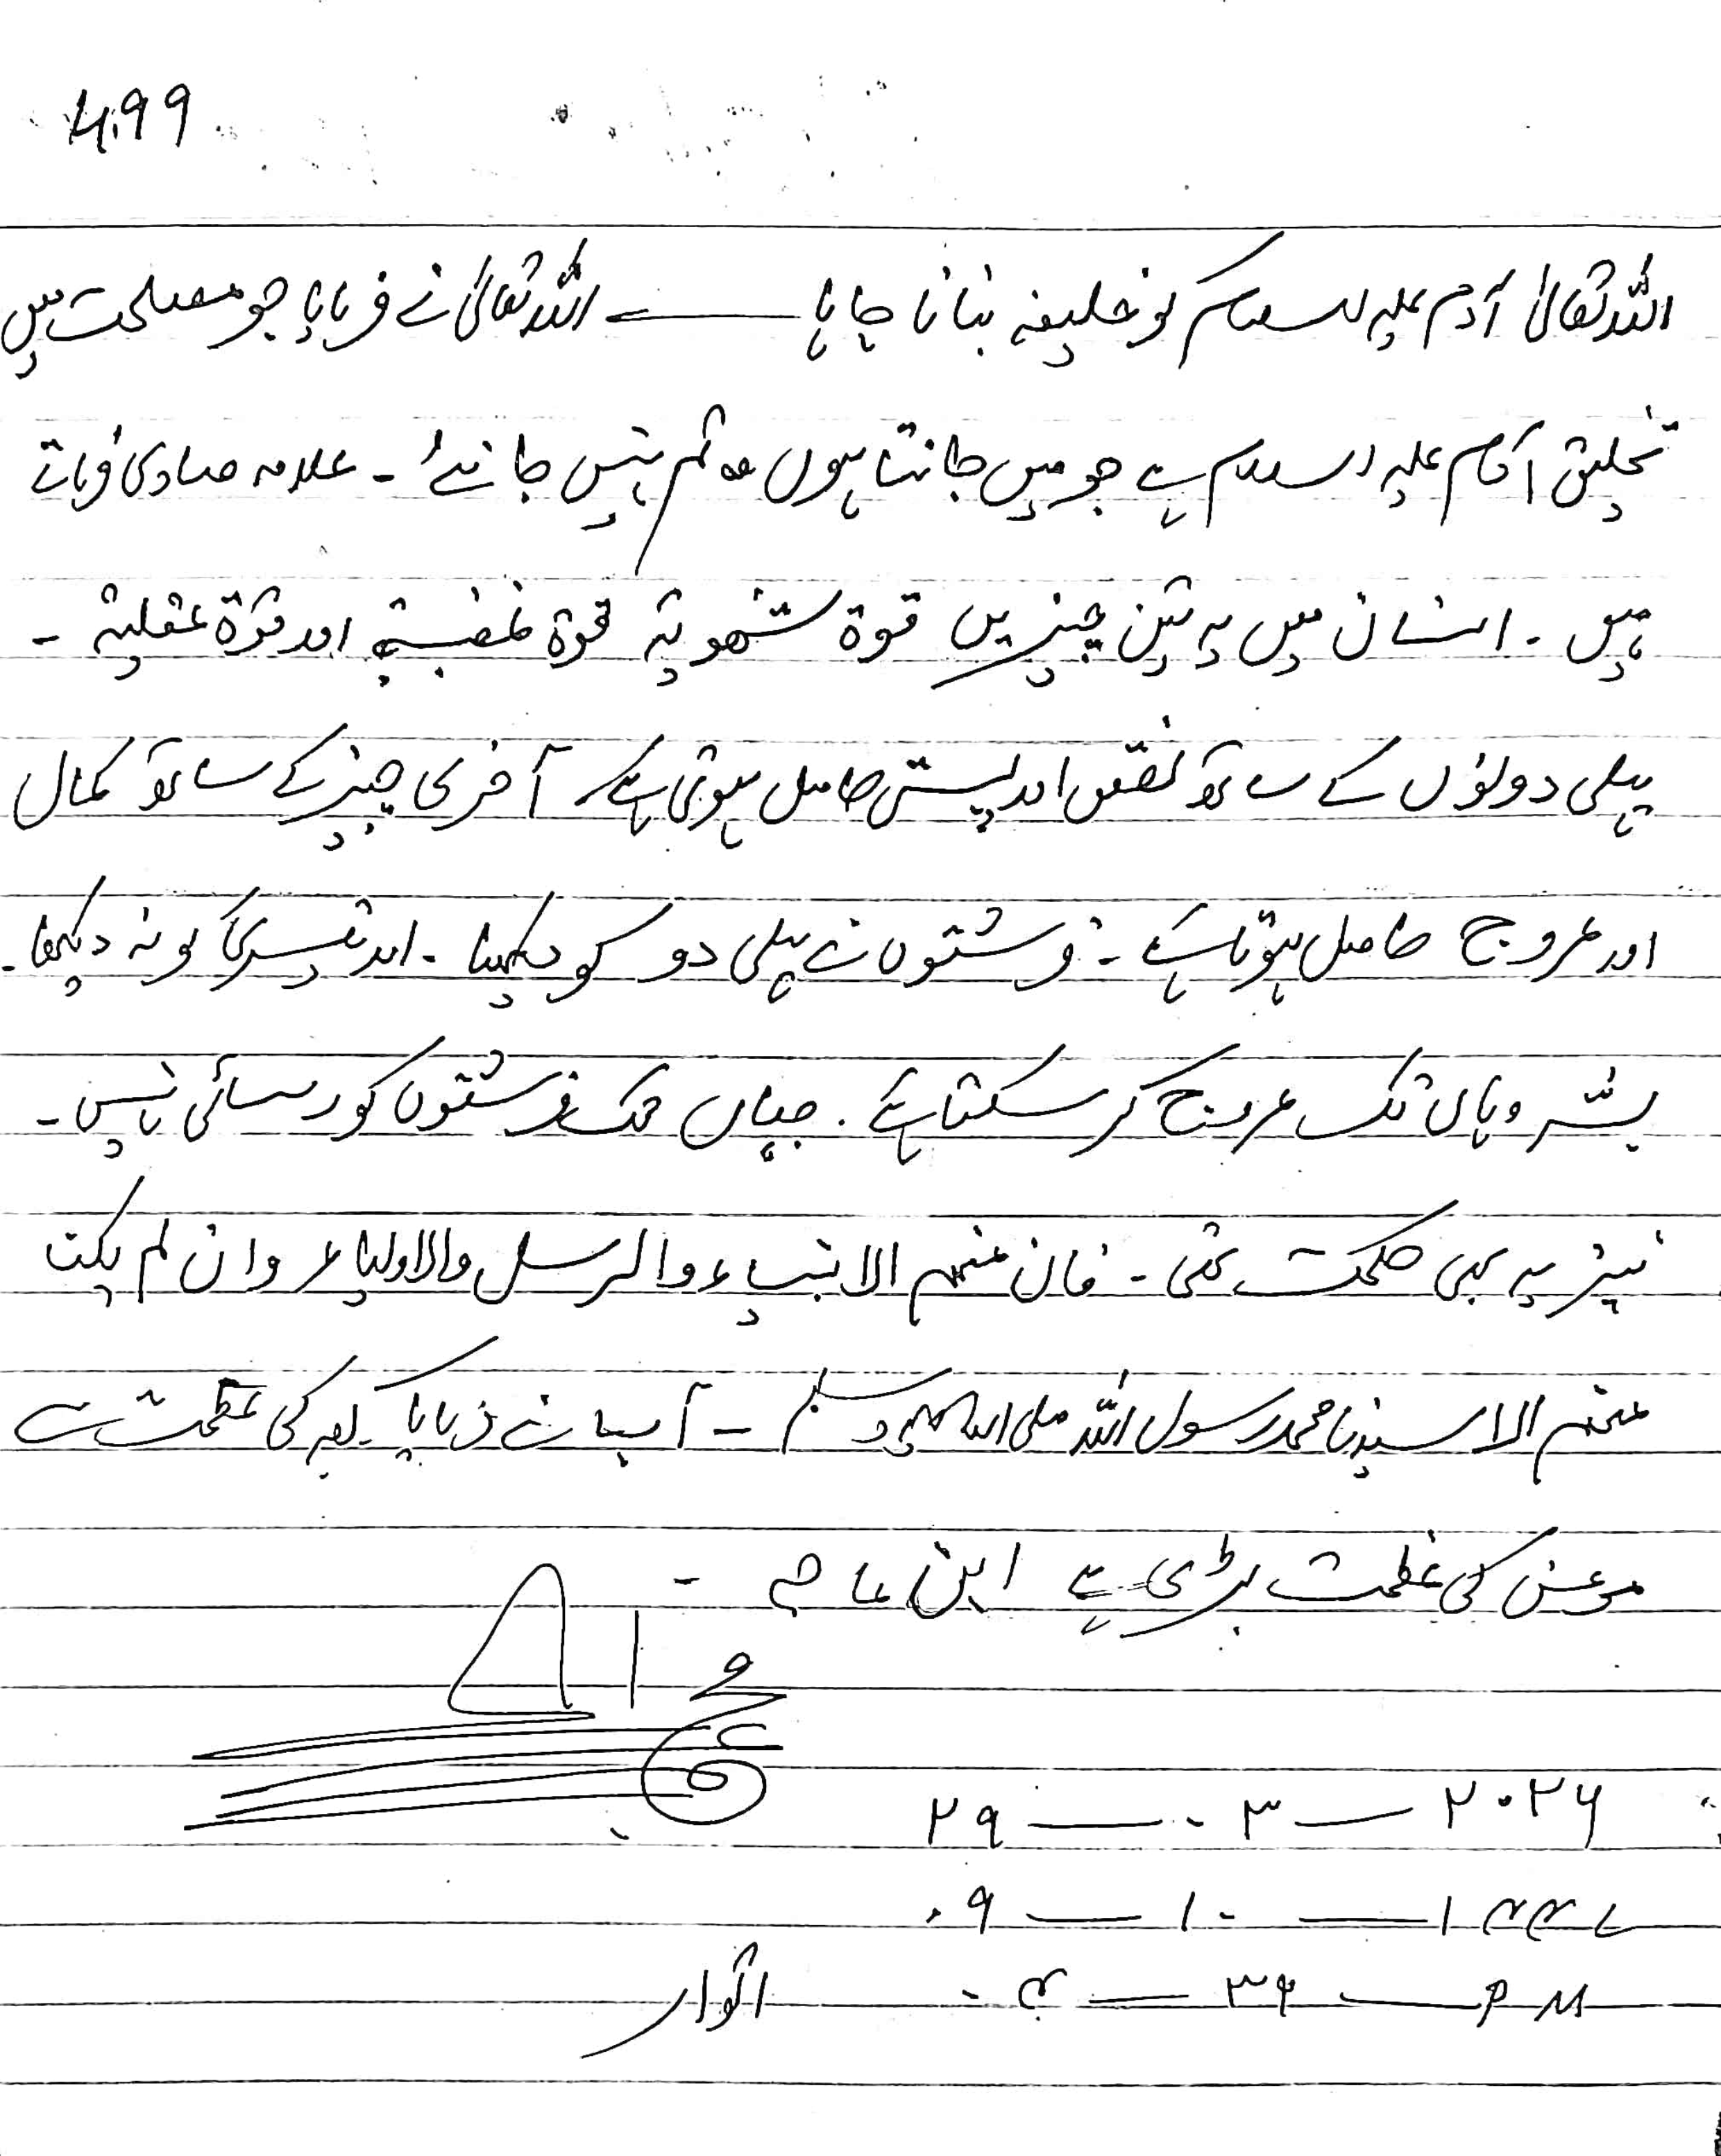 4099
اللہ تعالیٰ آدم علیہ السلام کو خلیفہ بنانا چاہا ــــــ اللہ تعالیٰ نے فرمایا جو مصلحت میں
تخلیق آدم علیہ السلام ہے جو میں جانتا ہوں وہ تم نہیں جانتے۔ علامہ صاوی فرماتے
ہیں۔ انسان میں یہ تین چیزیں قوۃ شھویۃ قوۃ غضبیۃ اور قوۃ عقلیۃ۔
پہلی دونوں کے ساتھ نقص اور پستی حاصل ہوتی ہے۔ آخری چیز کے ساتھ کمال
اور عروج حاصل ہوتا ہے۔ فرشتوں نے پہلی دو کو دیکھا۔ اور تیسری کو نہ دیکھا۔
بشر وہاں تک عروج کر سکتا ہے۔ جہاں تک فرشتوں کو رسائی نہیں۔
نیز یہ بھی حکمت تھی۔ فان منھم الانبیاء والرسل والاولیاء وان لم یکن
منھم الا سیدنا محمد رسول اللہ صلی اللہ علیہ وسلم ۔ آپ نے فرمایا کعبہ کی عظمت سے
مومن کی عظمت بڑی ہے ابن ماجہ ۔
۲۹ ــ ۰۳ ــ ۲۰۲۶
۰۹ ــ ۱۰ ــ ۱۴۴۷
۰۴ ــ ۳۴ ــ PM اتوار